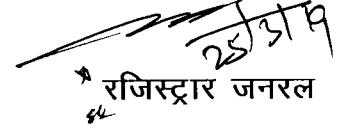 25/3/19
रजिस्ट्रार जनरल